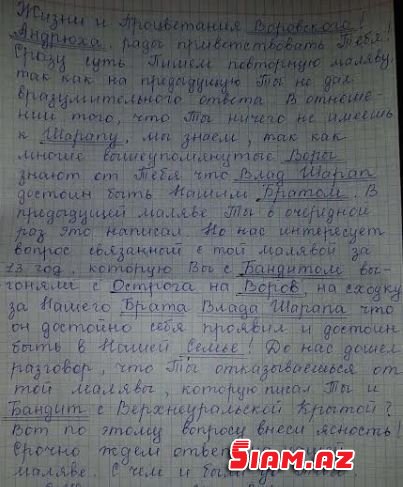 Жизни и Процветания Воровского!
Андрюха, рады приветствовать Тебя!
Сразу суть Пишем повторную маляву,
так как на предыдущую Ты не дал
вразумительного ответа В отноше-
нии того, что Ты ничего не имеешь
к Шарапу, мы знаем, так как
многие вышеупомянутые Воры
знают от Тебя что Влад Шарап
достоин быть Нашим Братом. В
предыдущей маляве Ты в очередной
раз это написал. Но нас интересует
вопрос связанный с той малявой за
13 год, которую Вы с Бандитом вы-
гоняли с Острога на Воров, на сходку
за Нашего Брата Влада Шарапа что
он достойно себя проявил и достоин
быть в Нашей Семье! До нас дошел
разговор, что Ты отказываешься от
той малявы, которую писал Ты и
Бандит с Верхнеуральской Крытой?
Вот по этому вопросу внеси ясность!
Срочно ждем ответ
маляве. С чем и были
Siam.Az